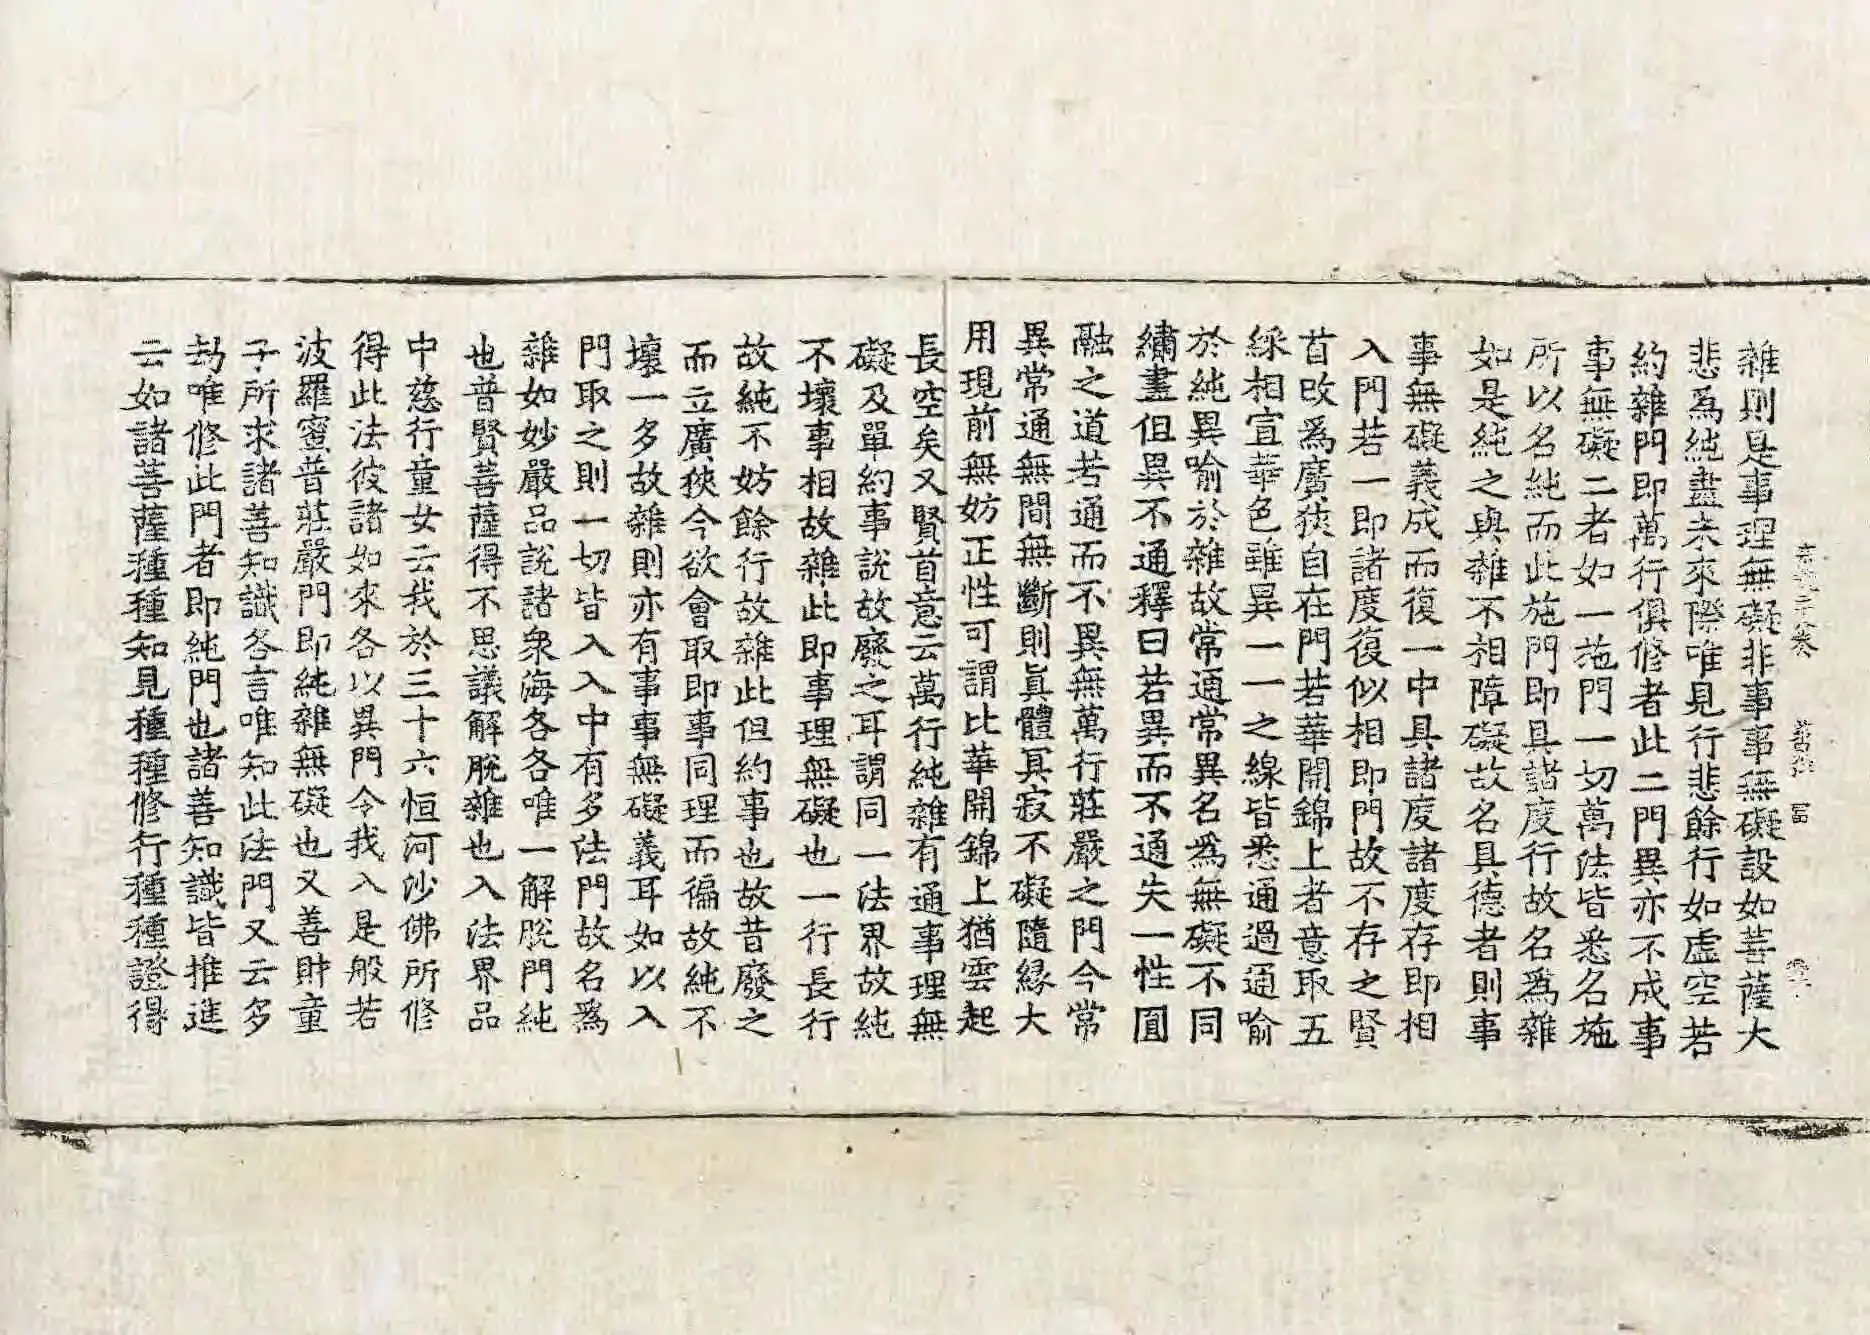 雜則是事理無礙非事事無礙設如菩薩大
悲爲純盡未來際唯見行悲餘行如虛空若
約雜門即萬行俱修者此二門異亦不成事
事無礙二者如一施門一切萬法皆悉名施
所以名純而此施門即具諸度行故名爲雜
如是純之與雜不相障礙故名具德者則事
事無礙義成而復一中具諸度諸度存即相
入門若一即諸度復似相即門故不存之賢
首改爲廣狹自在門若華開錦上者意取五
綵相宣華色雖異一一之線皆悉通過通喻
於純異喻於雜故常通常異名爲無礙不同
繡畫但異不通釋曰若異而不通失一性圓
融之道若通而不異無萬行莊嚴之門今常
異常通無間無斷則眞體冥寂不礙隨緣大
用現前無妨正性可謂比華開錦上猶雲起
長空矣又賢首意云萬行純雜有通事理無
礙及單約事說故廢之耳謂同一法界故純
不壞事相故雜此即事理無礙也一行長行
故純不妨餘行故雜此但約事也故昔廢之
而立廣狹今欲會取即事同理而徧故純不
壞一多故雜則亦有事事無礙義耳如以入
門取之則一切皆入入中有多法門故名爲
雜如妙嚴品說諸衆海各各唯一解脫門純
也普賢菩薩得不思議解脫雜也入法界品
中慈行童女云我於三十六恒河沙佛所修
得此法彼諸如來各以異門令我入是般若
波羅蜜普莊嚴門即純雜無礙也又善財童
子所求諸善知識各言唯知此法門又云多
劫唯修此門者即純門也諸善知識皆推進
云如諸菩薩種種知見種種修行種種證得